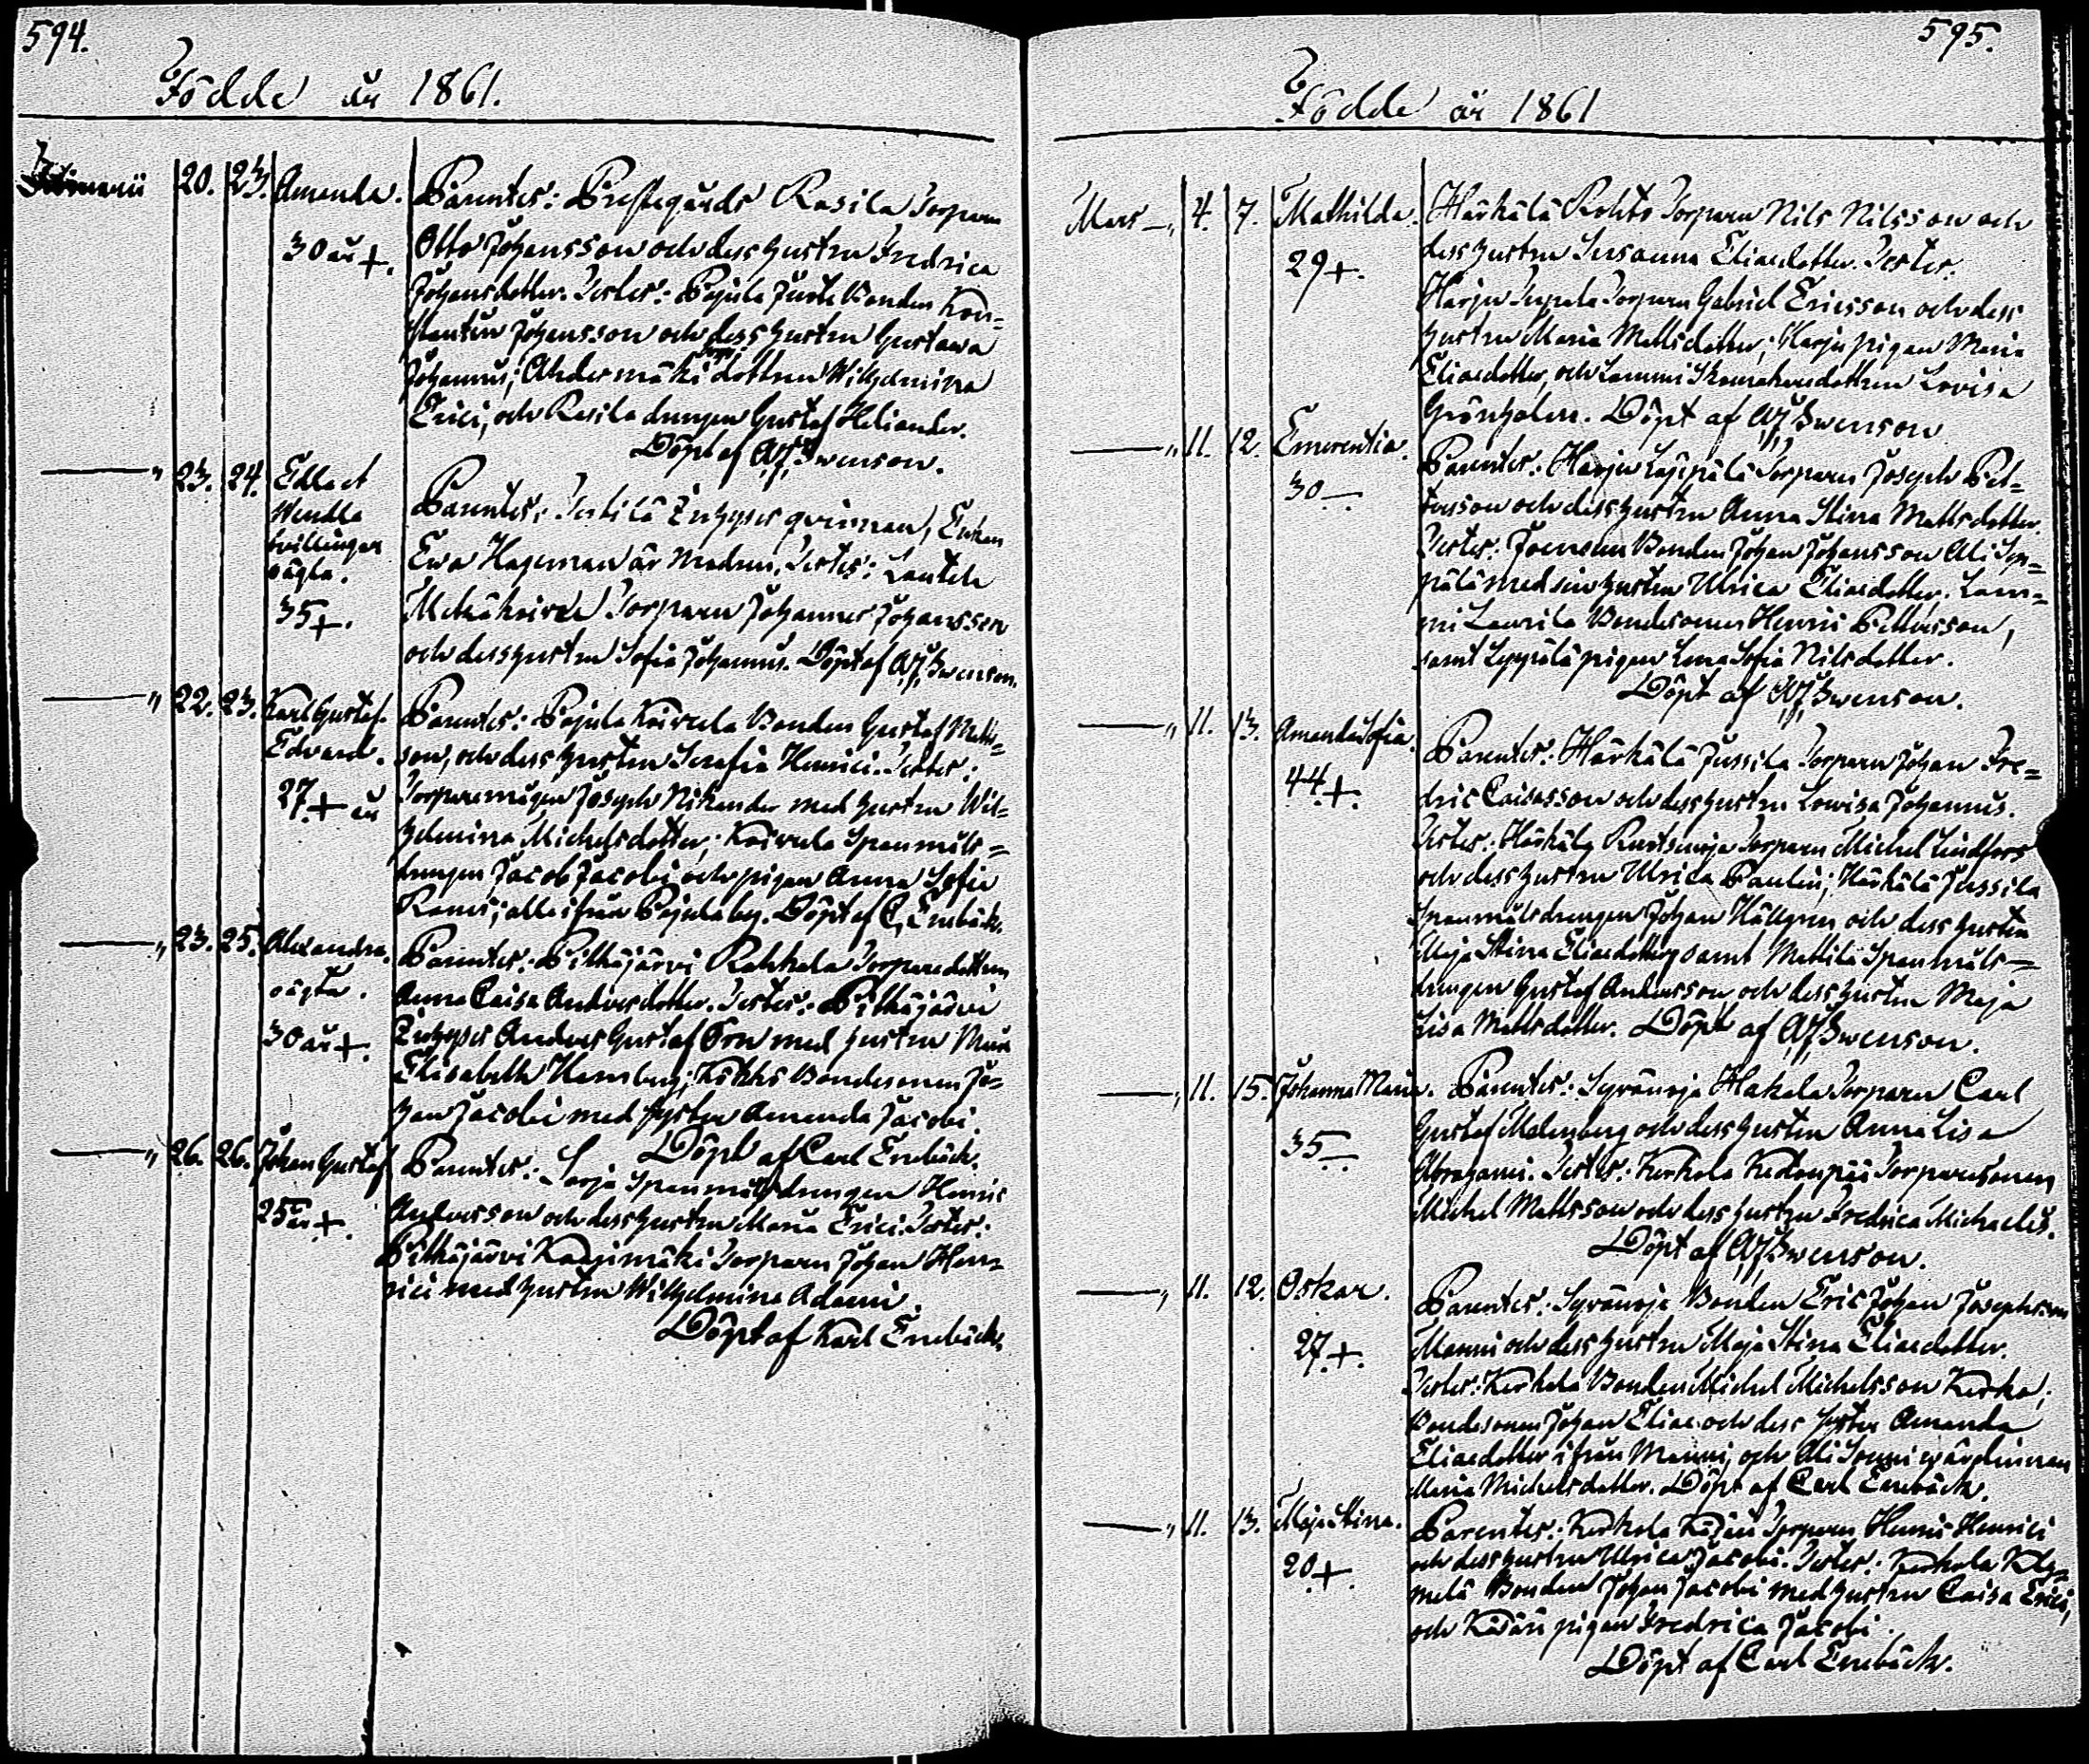 594.
Födde år 1861.
20. 23. Amanda. Parentes: Prestegårds Rasila Torparn
30 år +. Otto Johansson och dess hustru Fredrica
Johansdotter. Testes: Pajula Juste Bonden Kon-
stantin Johansson och dess hustru Gustava
Johannis; Ahdermäki dottren Wilhelmina
Erici, och Rasila drengen Gustaf Heliander.
Döpt af A.J. Swenson.
—„ 23. 24. Edla et
Wendla
tvillingar
oägta.
35 +.
Parentes: Inhyses qvinnan, Enkan
Ewa Hageman är modren. Testes: Lautela
Torparn Johannes Johansson
och dess hustru Sofia Johannis. Döpt af A.J. Swenson.
—„ 22. 23. Karl Gustaf
Edvard.
27 + år
Parentes: Pajula Koivula Bonden Gustaf Matts-
son, och dess hustru Serafia Henrici. Testes:
Torparemågen Joseph Nikander med hustru Wil-
helmina Michelsdotter; Koivula Spanmåls-
drengen Jacob Jacobi och pigan Anna Sofia
; alle ifrån Pajula by. Döpt af C. Enebäck.
—„ 23. 25. Alexandra.
oägta.
30 år +.
Parentes: Pitkäjärvi Rahkola Torparedottren
Anna Caisa Andersdotter. Testes: Pitkäjärvi
Inhyses Anders Gustaf Örn med hustru Maria
Elisabeth Hamberg; Bondesonen Jo-
han Jacobi med syster Amanda Jacobi.
Döpt af Carl Enebäck.
—„ 26. 26. Johan Gustaf
25 år +.
Parentes: Sarja Spanmålsdrengen Henric
Andersson och dess hustru Maria Erici. Testes:
Pitkäjärvi Karjimäki Torparn Johan Hen-
rici med hustru Wilhelmina Adami.
Döpt af Karl Enebäck.
595.
Födde år 1861
Mars —„ 4. 7. Mathilda. Härkälä Rohto Torparn Nils Nilsson och
29 +. dess hustru Susanna Eliaedotter. Testes.
Harju Torparn Gabriel Ericsson och dess
hustru Maria Mattsdotter; Harju pigan Maria
Eliaedotter, och Lammi Skomakaredottren Lovisa
Grönholm. Döpt af A.J. Swenson
—„ 11. 12. Emerentia.
30 —
Parentes: Harju Torparn Joseph Pet-
tersson och dess hustru Anna Stina Mattsdotter.
Testes: Joensuu Bonden Johan Johansson Ali Sep-
pälä med sin hustru Ulrica Eliaedotter. Lam-
mi Laurila Bondesonen Henric Pettersson,
samt Seppälä pigan Lena Sofia Nilsdotter.
Döpt af A.J. Swenson.
—„ 11. 13. Amanda Sofia.
44 +.
Parentes: Härkälä Jussila Torparn Johan Fre-
dric Caisasson och dess hustru Lowisa Johannis.
Testes: Härkälä Torparn Michel Lindfors
och dess hustru Ulrica Paulin; Härkälä Jussila
Spanmålsdrengen Johan Hällgren och dess hustru
Maja Stina Eliaedotter, samt Mattila Spanmåls-
drengen Gustaf Andersson och dess hustru Maja
Lisa Mattsdotter. Döpt af A.J. Swenson.
—„ 11. 15. Johanna Maria.
35 —
Parentes: Syvänoja Hakala Torparn Carl
Gustaf Malmberg och dess hustru Anna Lisa
Abrahami. Testes: Kerkola Torparesonen
Michel Mattsson och dess hustru Fredrica Michaelis.
Döpt af A.J. Swenson.
—„ 11. 12. Oskar.
27 +.
Parentes: Syvänoja Bonden Eric Johan Josephsson
Manni och dess hustru Maja Stina Eliaedotter.
Testes: Kerkola Bonden Michel Michelsson Kerko,
Bondesonen Johan Eliae och dess syster Amanda
Eliaedotter ifrån Manni, och Ali Sonni wärdinnan
Maria Michelsdotter. Döpt af Carl Enebäck.
—„ 11. 13. Maja Stina.
20 +.
Parentes: Kerkola Torparn Henric Henrici
och dess hustru Ulrica Jacobi. Testes: Kerkola Kly-
melä Bonden Johan Jacobi med hustru Caisa Erici,
och pigan Fredrica Jacobi.
Döpt af Carl Enebäck.